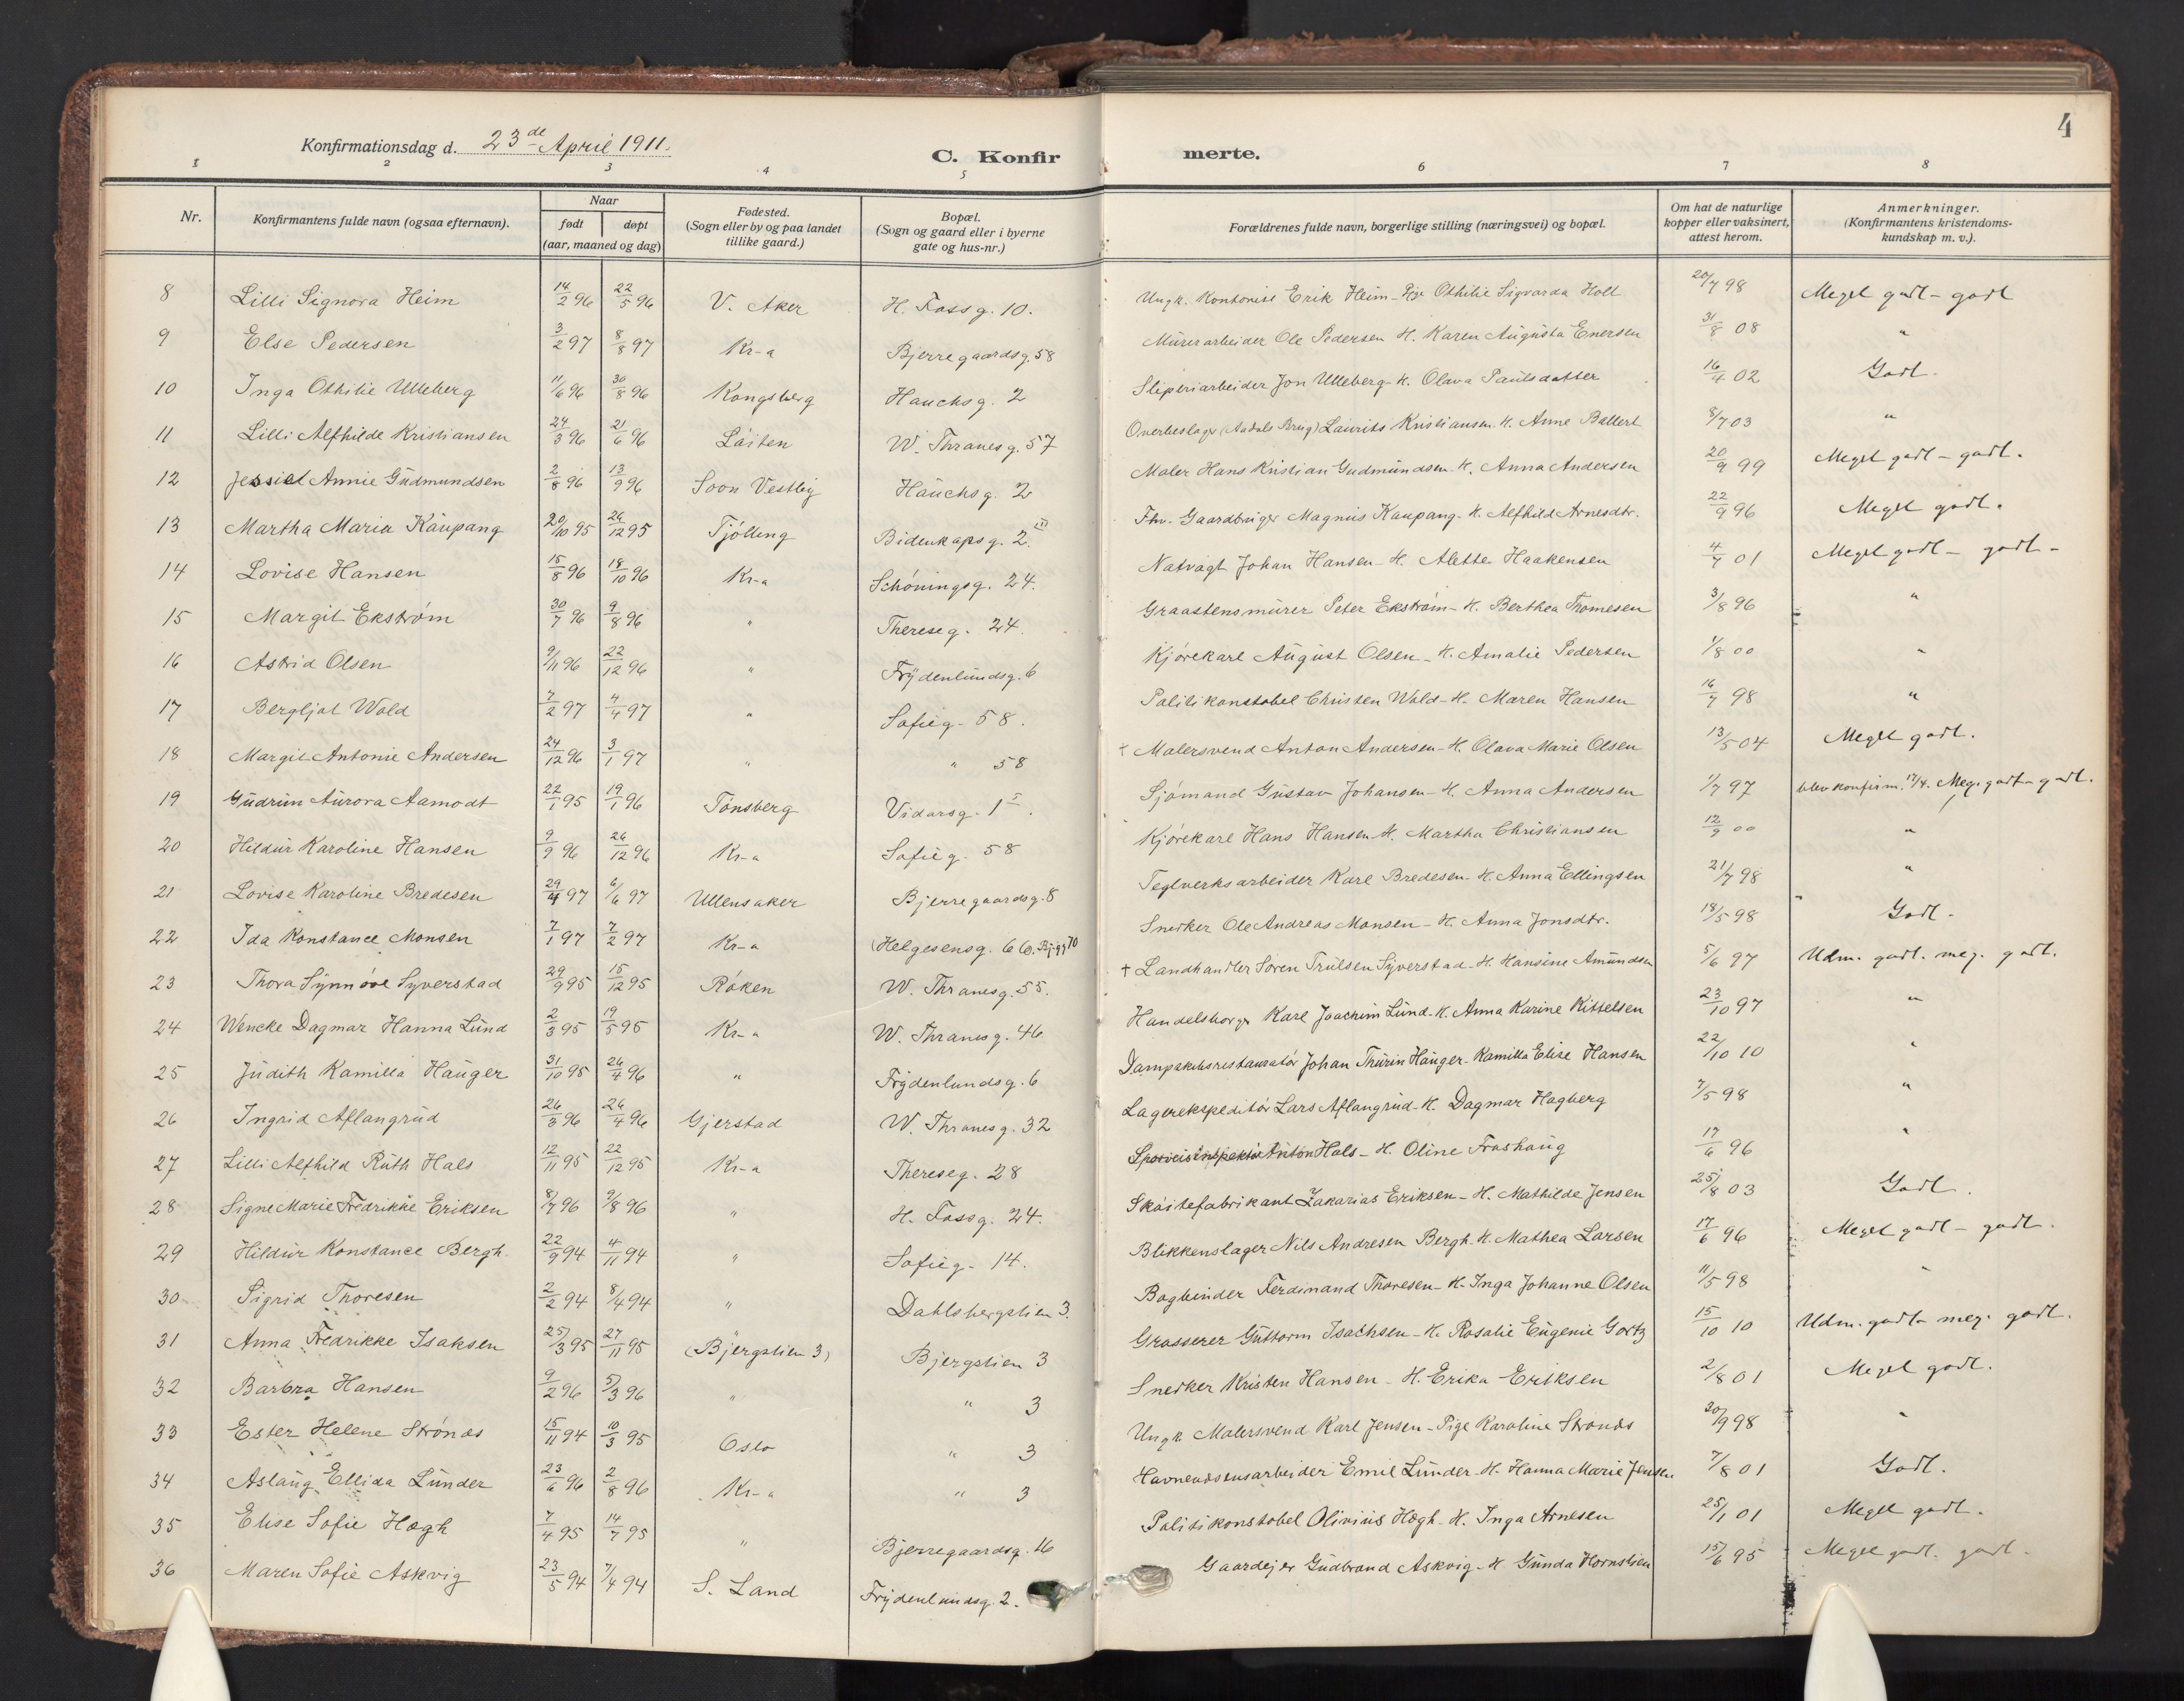 4
Konfirmationsdag d. 23de April 1911.
C. Konfirmerte.
1 2 3 4 5 6 7 8
Nr. | Konfirmantens fulde navn (ogsaa efternavn). | Naar født døpt (aar, maaned og dag) | Fødested. (Sogn eller by og paa landet tillike gaard.) | Bopæl. (Sogn og gaard eller i byerne gate og hus-nr.) | Forældrenes fulde navn, borgerlige stilling (næringsvei) og bopæl. | Om hat de naturlige kopper eller vaksinert, attest herom. | Anmerkninger. (Konfirmantens kristendomskundskap m. v.).
8 Lilli Signora Heim 14/2 96 22/5 96 V. Aker H. Fossg. 10. Ungk. Kontorist Erik Heim - Pige Othilie Sigvarda Holl 20/7 98 Meget godt - godt
9 Else Pedersen 3/2 97 8/8 97 Kr-a Bjerregaardsg. 58 Murerarbeider Ole Pedersen H. Karen Augusta Enersen 31/8 08 "
10 Inga Othilie Ulleberg 11/6 96 30/8 96 Kongsberg Hauchsg. 2 Sliperiarbeider Jon Ulleberg - H. Olava Paulsdatter 16/4 02 Godt.
11 Lilli Alfhilde Kristiansen 24/3 96 21/6 96 Løiten W. Thranesg. 57 (Aadals Brug) Laurits Kristiansen. H. Anne Ballert 8/7 03 "
12 Annie Gudmundsen 2/8 96 13/9 96 Soon Vestby Hauchsg. 2 Maler Hans Kristian Gudmundsen. H. Anna Andersen 20/9 99 Meget godt - godt.
13 Martha Maria Kaupang 20/10 95 26/12 95 Tjølling Bidenkapsg. 2 III Fhv. Gaardbruger Magnus Kaupang - H. Alfhild Arnesdtr. 22/9 96 Meget godt.
14 Lovise Hansen 15/8 96 18/10 96 Kr-a Schøningsg. 24. Natvagt Johan Hansen - H. Alette Haakensen 4/7 01 Meget godt - godt -
15 Margit Ekstrøm 30/7 96 9/8 96 " Thereseg. 24. Graastensmurer Peter Ekstrøm - H. Berthea Thomesen 3/8 96 "
16 Astrid Olsen 9/11 96 22/12 96 " Frydenlundsg. 6 Kjørekarl August Olsen - H. Amalie Pedersen 1/8 00 "
17 Bergljot Wold 7/2 97 4/4 97 " Sofieg. 58. Politikonstabel Christen Wold - H. Maren Hansen 16/7 98 "
18 Margit Antonie Andersen 24/12 96 3/1 97 " " 58 † Malersvend Anton Andersen - H. Olava Marie Olsen 13/5 04 Meget godt.
19 Gudrun Aurora Aamodt 22/1 95 19/1 96 Tønsberg Vidarsg. 1 I. Sjømand Gustav Johansen - H. Anna Andersen 1/7 97 blev konfirm. 17/4. Meg. godt - godt.
20 Hildur Karoline Hansen 9/9 96 26/12 96 Kr-a Sofieg. 58 Kjørekarl Hans Hansen - H. Martha Christiansen 12/9 00 "
21 Lovise Karoline Bredesen 29/4 97 6/6 97 Ullensaker Bjerregaardsg. 8 Teglverksarbeider Karl Bredesen - H. Anna Ellingsen 21/7 98 "
22 Ida Konstance Monsen 7/1 97 7/2 97 Kr-a (Helgesensg. 66. Snedker Ole Andreas Monsen - H. Anna Jonsdtr. 18/5 98 Godt.
23 Thora Synnøve Syverstad 29/9 95 15/12 95 Røken W. Thranesg. 55. † Landhandler Søren Trulsen Syverstad - H. Hansine Amundsen 5/6 97 Udm. godt. meg. godt.
24 Wencke Dagmar Hanna Lund 2/3 95 19/5 95 Kr-a W. Thranesg. 46 Handelsborger Karl Joachim Lund - H. Anna Karine Kittelsen 23/10 97 "
25 Judith Kamilla Hauger 31/10 95 26/4 96 " Frydenlundsg. 6 Dampskibsrestauratør Johan Thurin Hauger - Kamilla Elise Hansen 22/10 10 "
26 Ingrid Aflangrud 26/3 96 26/4 96 Gjerstad W. Thranesg. 32 Lagerekspeditør Lars Aflangrud - H. Dagmar Hagberg 7/5 98 "
27 Lilli Alfhild Ruth Hals 12/11 95 22/12 95 Kr-a Thereseg. 28 Sporveisinspektør Anton Hals - H. Oline Froshaug 17/6 96 "
28 Signe Marie Fredrikke Eriksen 8/7 96 9/8 96 " H. Fossg. 24. Skøitefabrikant Zakarias Eriksen - H. Mathilde Jensen 25/8 03 Godt.
29 Hildur Konstance Bergh. 22/9 94 4/11 94 " Sofieg. 14. Blikkenslager Nils Andresen Bergh. H. Mathea Larsen 17/6 96 Meget godt - godt.
30 Sigrid Thoresen 2/2 94 8/4 94 " Dahlsbergstien 3. Bogbinder Ferdinand Thoresen - H. Inga Johanne Olsen 11/5 98 "
31 Anna Fredrikke Isaksen 25/3 95 27/11 95 " (Bjergstien 3) Bjergstien 3 Grosserer Guttorm Isachsen - H. Rosalie Eugenie Gortz 15/10 10 Udm. godt - meg. godt.
32 Barbra Hansen 9/2 96 5/3 96 " " 3 Snedker Kristen Hansen - H. Erika Eriksen 2/8 01 Meget godt.
33 Ester Helene Strønds 15/11 94 10/3 95 Oslo " 3 Ungk. Malersvend Karl Jensen - Pige Karoline Stronds 20/9 98 "
34 Aslaug Ellida Lunder 23/6 96 2/8 96 Kr-a " 3 Havnevæsensarbeider Emil Lunder - H. Hanna Marie Jensen 7/8 01 Godt.
35 Elise Sofie Høgh 7/4 95 14/7 95 " Bjerregaardsg. 16 Politikonstabel Olivius Høgh - H. Inga Arnesen 25/1 01 Meget godt.
36 Maren Sofie Askvig 23/5 94 7/4 94 S. Land Frydenlundsg. 2. Gaardejer Gudbrand Askvig - H. Gunda Hornslien 15/6 95 Meget godt. godt.